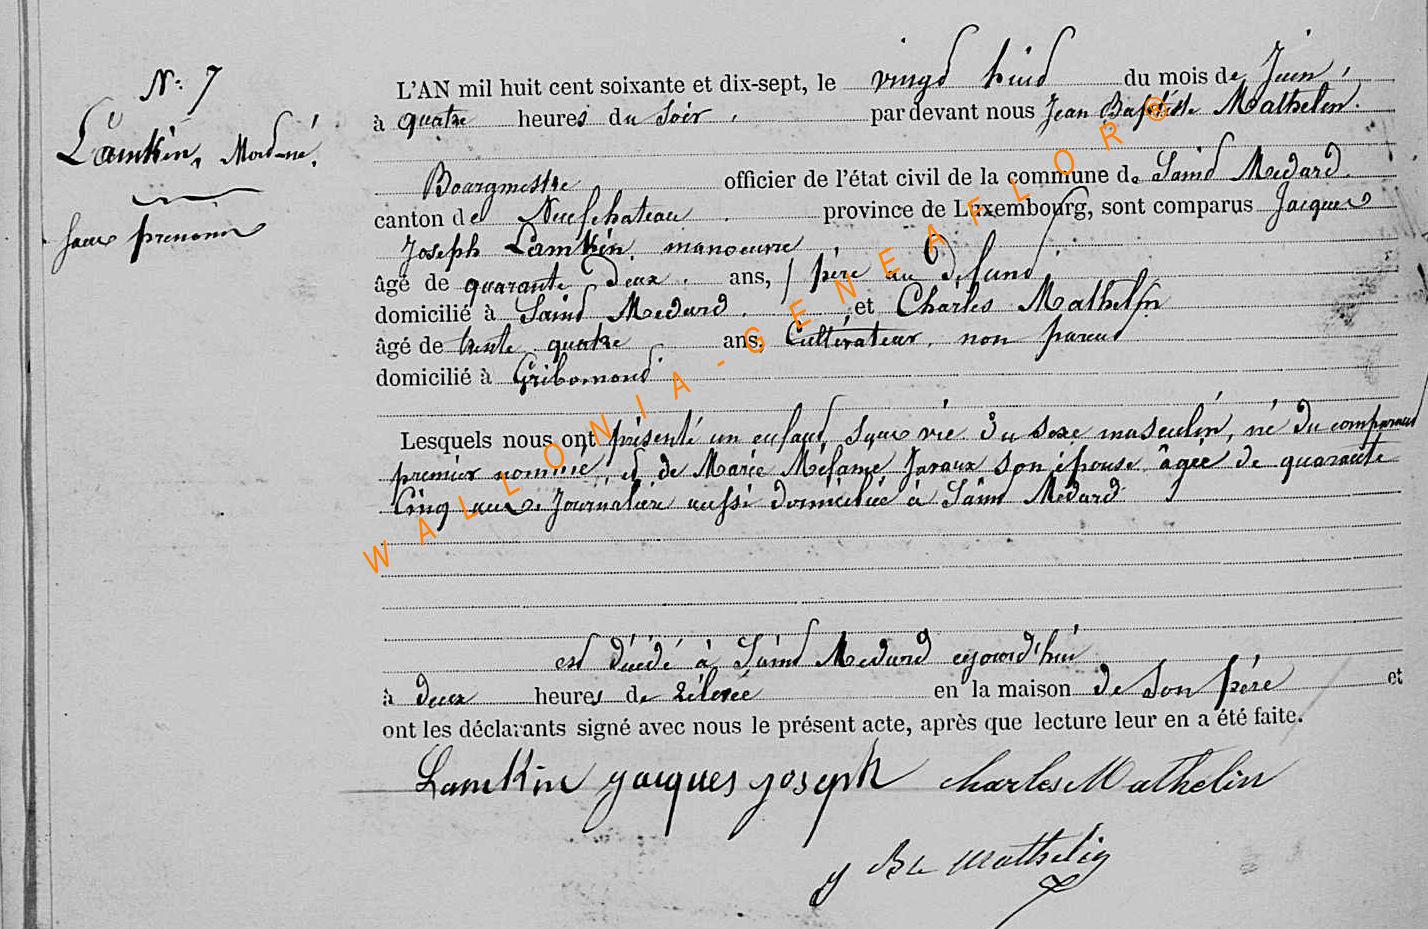 N: 7
Lamkin, Mord-né.
sans prenom
L'AN mil huit cent soixante et dix-sept, le vingd huid du mois de Juin,
à quatre heures du soir, par devant nous Jean Baptiste Mathelin.
Bourgmestre officier de l'état civil de la commune de Saind Medard.
canton de Neufchateau. province de Luxembourg, sont comparus Jacques
Joseph Lamkin, manoeuvre
âgé de quarante deux. ans, père au defund
domicilié à Saind Medard. et Charles Mathelin
âgé de trente quatre ans, Cultivateur, non parend
domicilié à Gribomond.
Lesquels nous ont présenté un enfand sans vie du sexe masculin, né du comparand
premier nommé, et de Marie Mélanie Javaux son épouse âgée de quarante
Cinq ans. Journalière aussi domiciliée à Saind Medard.
esd décédé à Saind Medard ajourd'hui
à deux heures de rélevée en la maison de son père et
ont les déclarants signé avec nous le présent acte, après que lecture leur en a été faite.
Lamkin jacques joseph charles Mathelin
J Bte Mathelin
WALLONIA-GENEAFLOR@